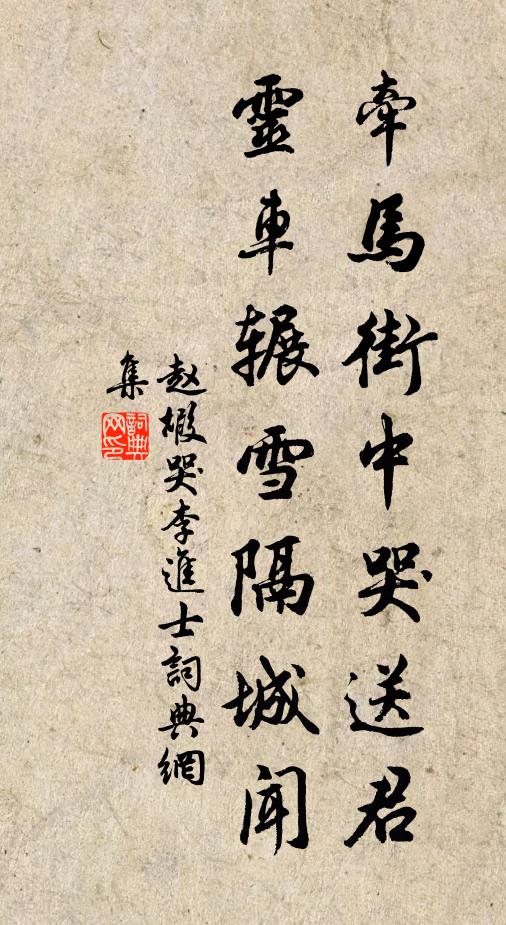 牽馬街中哭送君
靈車辗雪隔城聞
赵嘏哭李進士詞典網
集
詞典網印